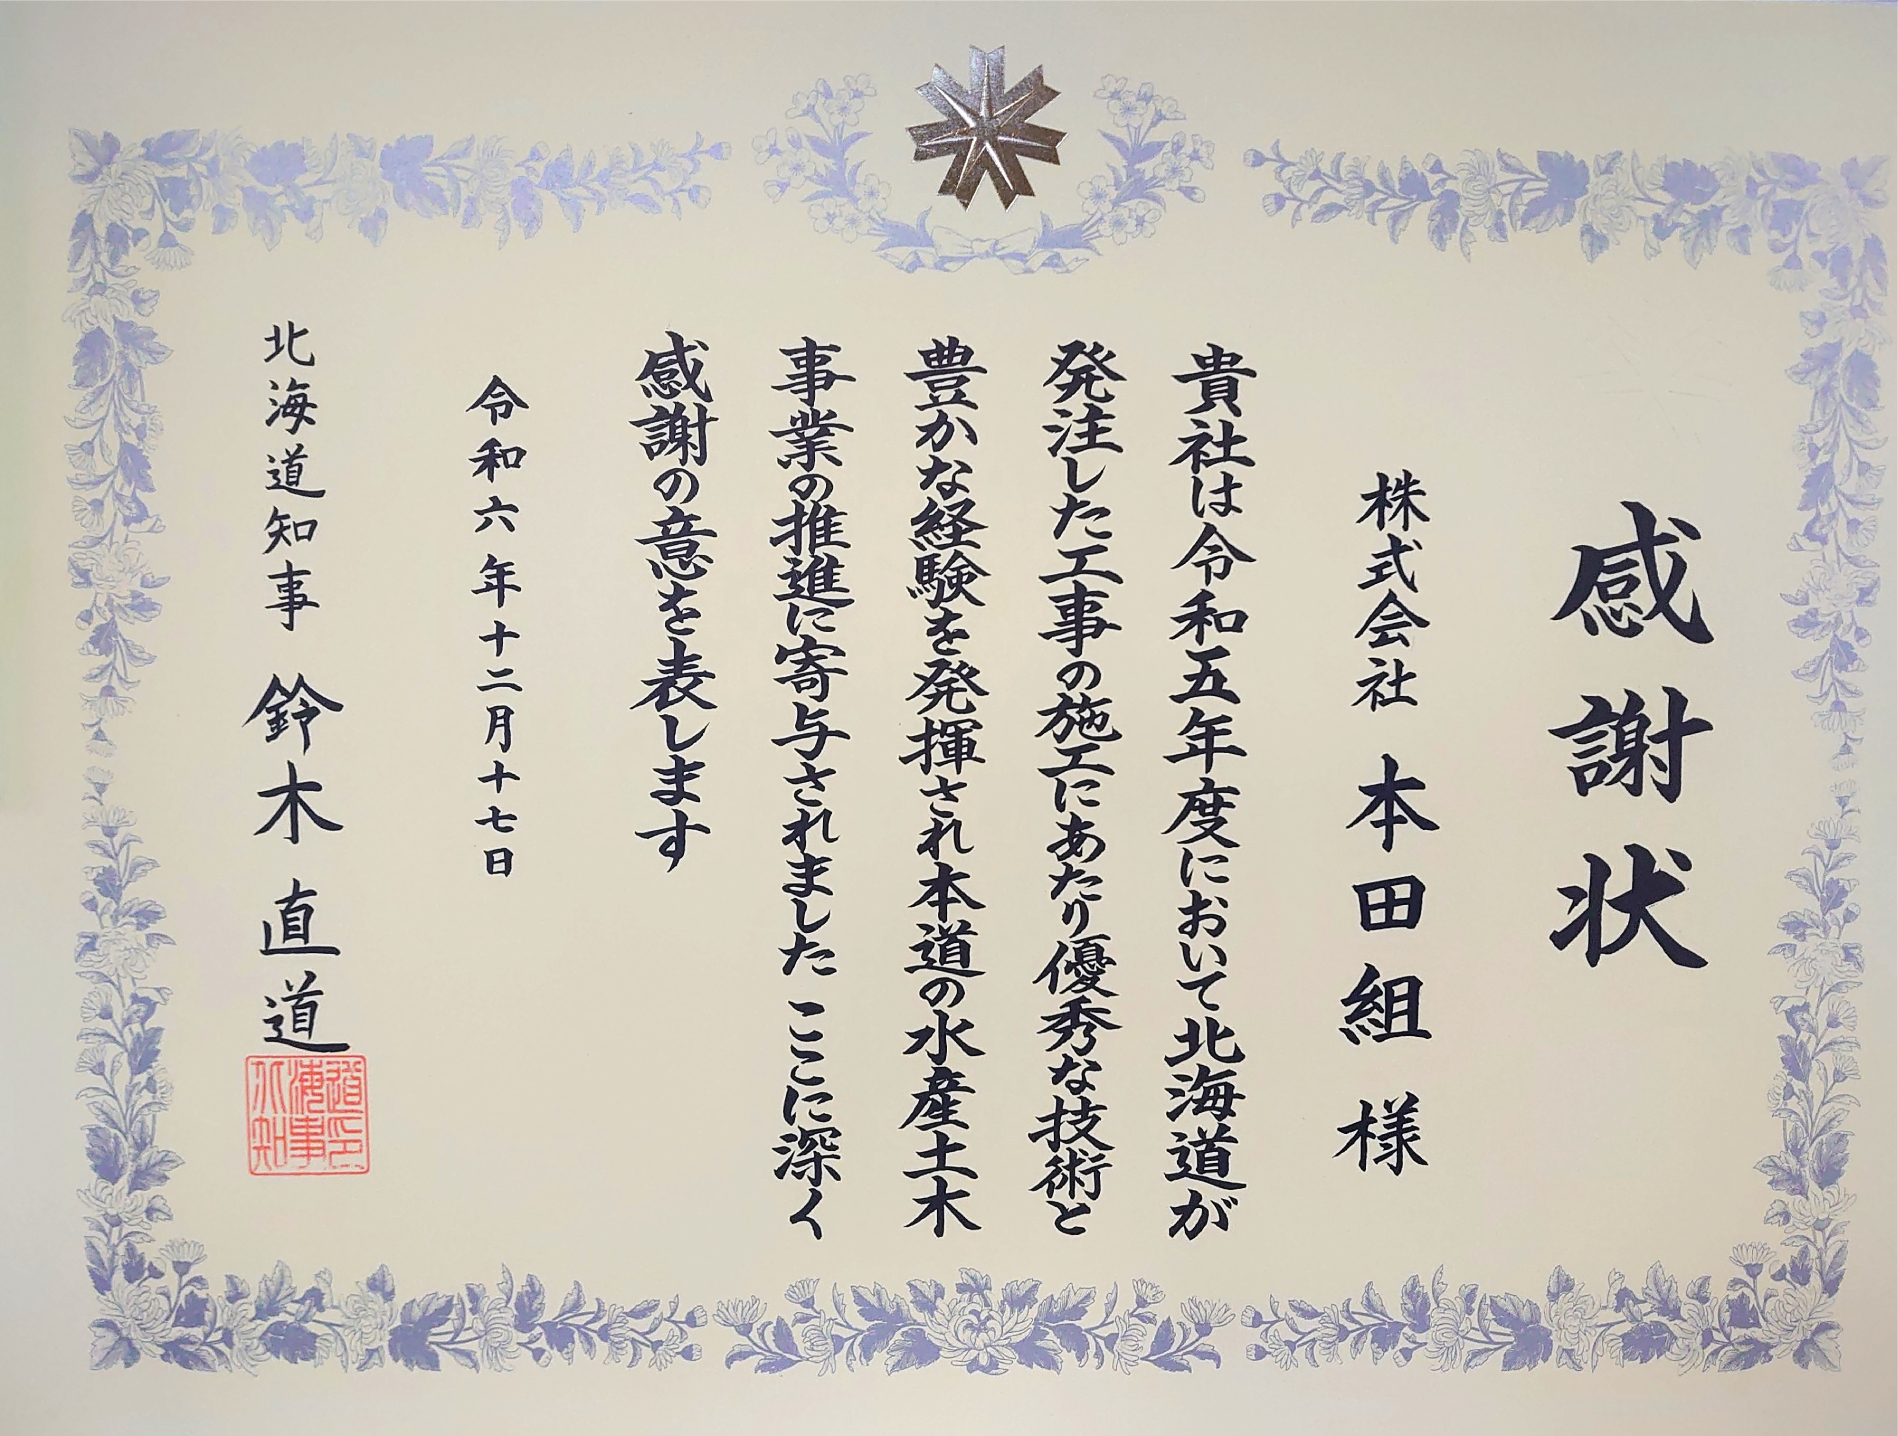 感謝状
株式会社 本田組 様
貴社は令和五年度において北海道が
発注した工事の施工にあたり優秀な技術と
豊かな経験を発揮され本道の水産土木
事業の推進に寄与されました ここに深く
感謝の意を表します
令和六年十二月十七日
北海道知事 鈴木直道
北海道知事印